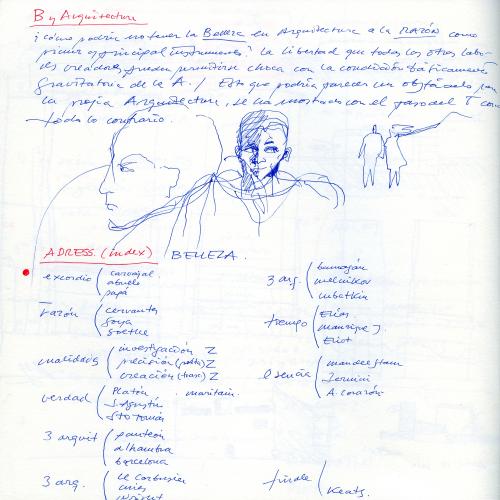 B y Arquitectura
¿Cómo podría no tener la Belleza en Arquitectura a la RAZÓN como
primer y principal instrumento? La libertad que todas las otras labo-
res creadoras pueden permitirse choca con la condición básicamente
gravitatoria de la A. / Esto que podría parecer un obstáculo para
la propia Arquitectura, se ha mostrado con el paso del T como
todo lo contrario.
ADRESS. (index) BELLEZA.
exordio ( carvajal
abuelo
papá
razón ( cervantes
Goya
Goethe
( investigación Z
precisión (poética) Z
creación (trans.) Z
verdad ( Platón maritain.
S. Agustín
Sto Tomás
3 arquit ( panteón
alhambra
barcelona
3 arq. ( Le Corbusier
mies
wright
3 arq. ( barragán
melnikov
utzon
tiempo ( Eliot
manrique J.
Eliot
( mandelstam
Bernini
A. corazón
finale ( Keats.